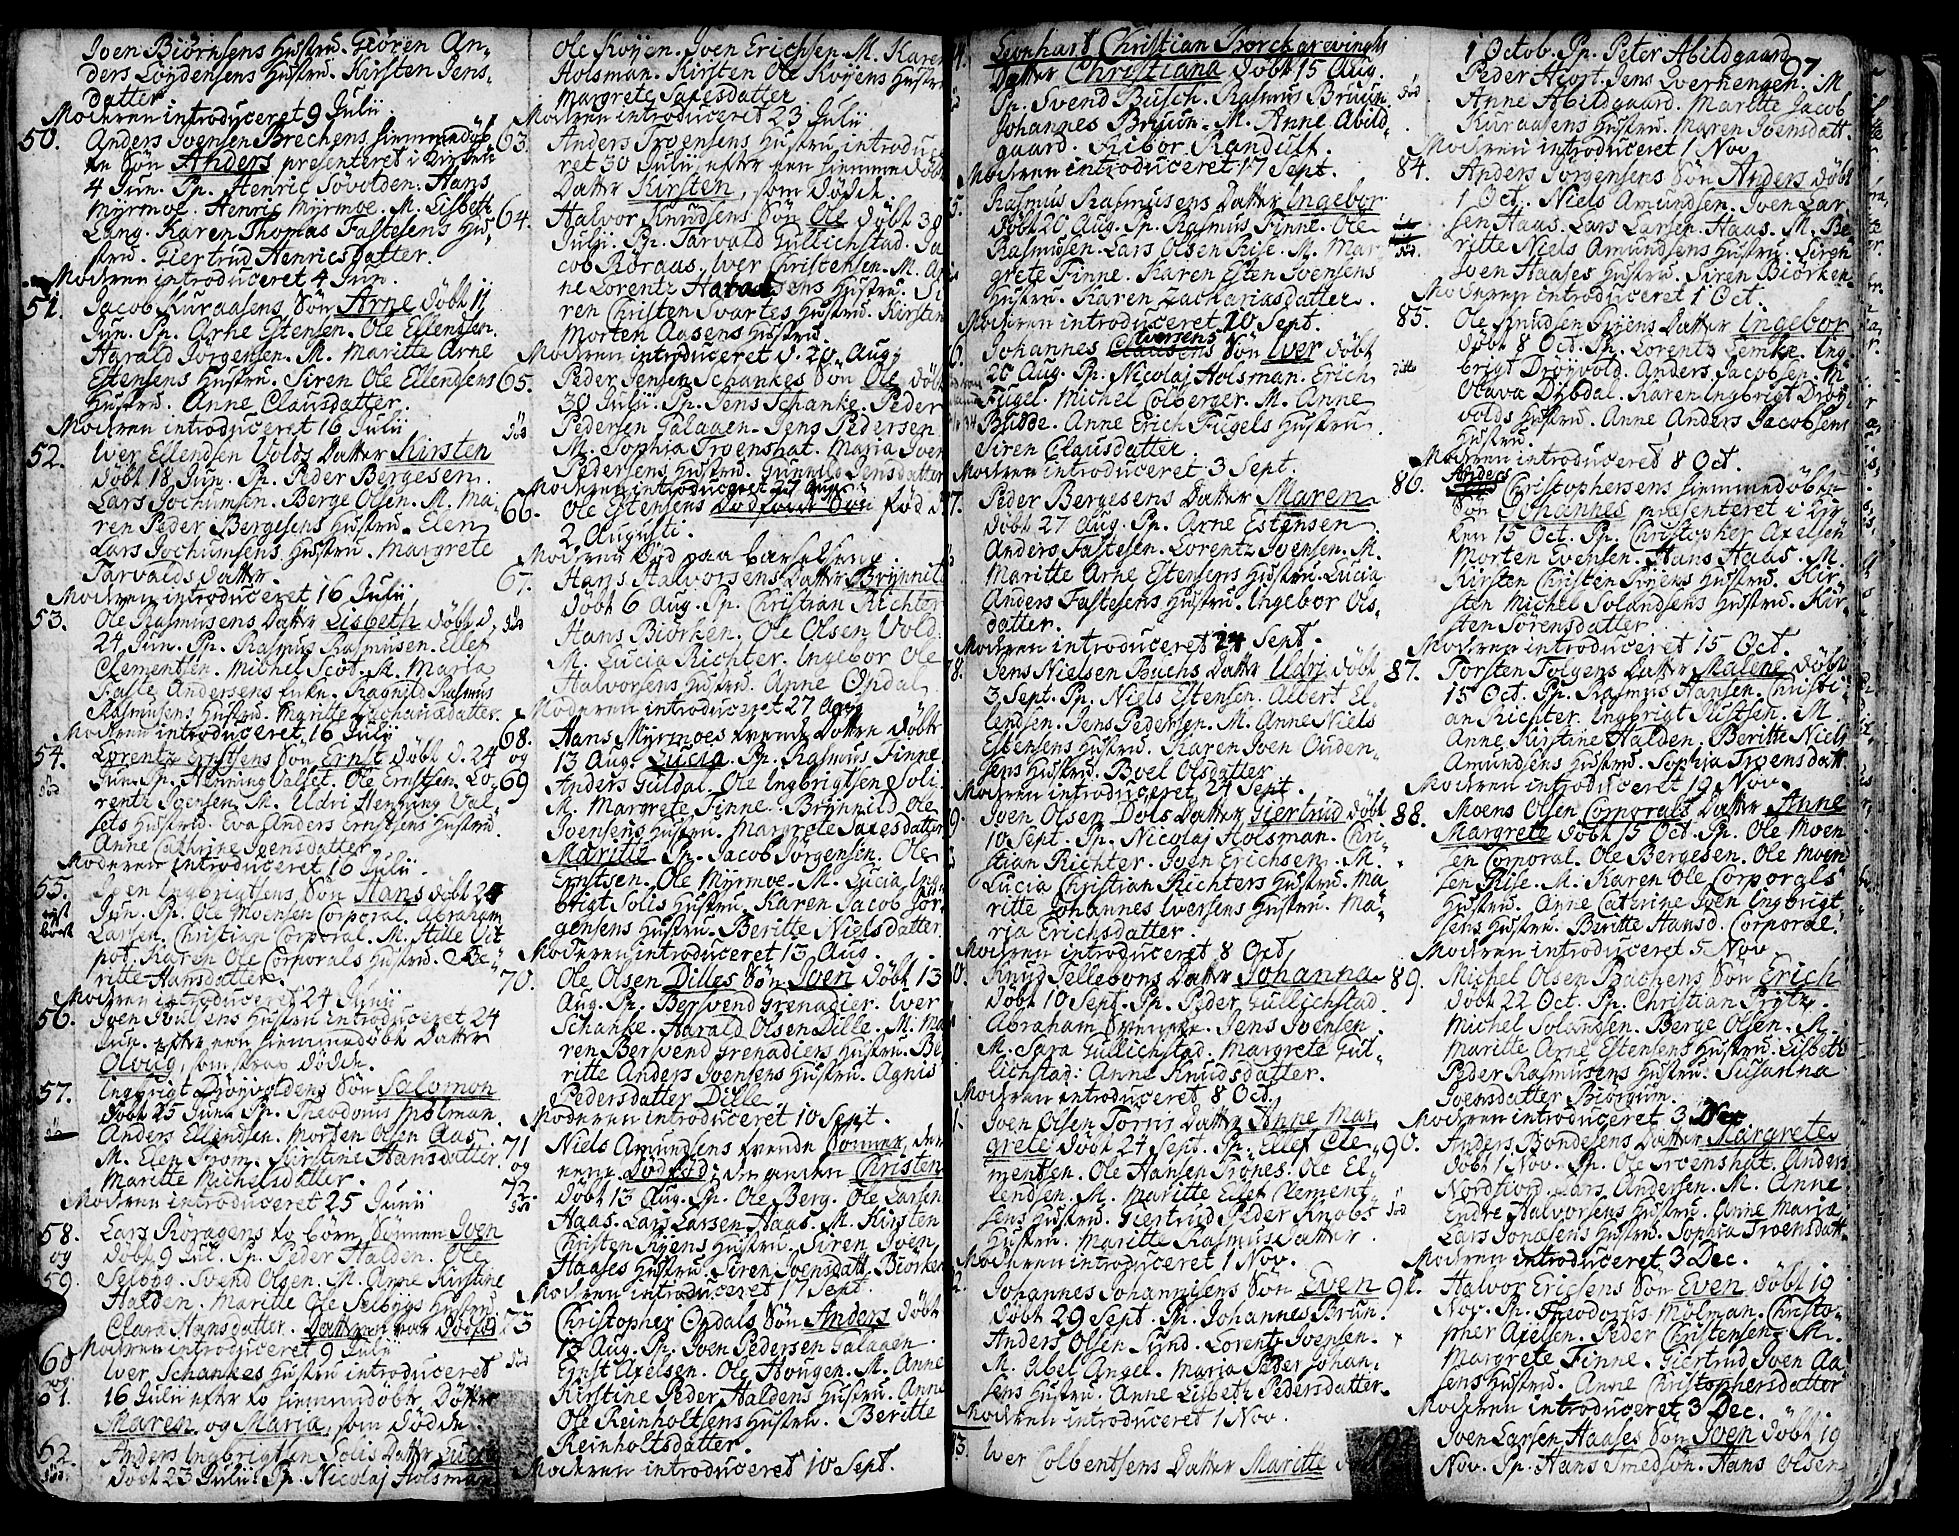 Joen Biörnsens Hustru. Giören An-
ders Löydensens Hustru. Kirsten Jens-
datter.
Moderen introduceret 9 Julii
50. Anders Joensen Brechens hiemmedöb-
te Sön Anders præsenteret i Kirken
4 Jun. Pp. Henric Sövolden. Hans
Myrmoe. Henric Myrmoe. M. Lisbeth
Lang. Karen Thomas Fastesens Hu-
stru. Giertrud Henricsdatter.
Moderen introduceret 4 Jun.
51. Jacob Kuraasens Sön Arne döbt 11
Jun. Pp. Arne Estensen. Ole Ellendsen.
Harald Jörgensen. M. Maritte Arne
Estensens Hustru. Siren Ole Ellendsens
Hustru. Anne Clausdatter.
Moderen introduceret 16 Julii
52. Iver Ellendsen Volds Datter Kirsten
döbt 18 Jun. Pp. Peder Bergesen.
Lars Jochumsen. Berge Olsen. M. Ma-
ren Peder Bergesens Hustru. Elen
Lars Jochumsens Hustru. Margrete
Tarvalds datter.
Moderen introduceret 16 Julii
53. Ole Rasmusens Datter Lisbeth döbt d.
24 Jun. Pp. Rasmus Rasmusen. Ellef
Clementsen. Michel Scot. M. Maria
Faste Andersens Enke. Ragnild Rasmus
Rasmusens Hustru. Maritte Zachariæsdatter.
Moderen introduceret 16 Julii
54. Lorentz Ernstsens Sön Ernst döbt d. 24
död Jun. Pp. Henning Valset. Ole Ernstsen. Lo-
rentz Joensen. M. Udri Henning Val-
sets Hustru. Eva Anders Ernstsens Hustru.
Anne Cathrine Joensdatter.
Moderen introduceret 16 Julii.
55. Joen Ingbrigtsens Sön Hans döbt 24
Jun. Pp. Ole Moensen Corporal. Abraham
Larsen. Christian Corporal. M. Stille Vit
pot. Karen Ole Corporals Hustru. Be-
ritte Hansdatter.
Moderen introduceret 24 Junii
56. Joen Poulsens Hustru introduceret 24
Jun. efter een hiemmedöbt Datter
Olvug, som strax dödde.
57. Ingbrigt Dröyvoldens Sön Salomon
döbt 25 Jun. Pp. Theodorus Molman.
Anders Ellendsen. Morten Olsen Aas.
M. Elen From. Kirstine Hansdatter.
Maritte Michelsdatter.
Moderen introduceret 25 Junii
58. Lars Röragens to börn Sönnen Joen
og döbt 9 Jul. Pp. Peder Halden. Ole
59. Selbög. Svend Olsen. M. Anne Kirstine
Halden. Maritte Ole Selbygs Hustru.
Clara Hansdatter. Datteren var dödföd
Moderen introduceret 9 Julii
60 Iver Schankes Hustru introduceret
og 16 Julii efter to hiemmedöbte Döttre
61. Maren og Maria, som dödde
62. Anders Ingbrigtsen Solis Datter Lucia
död. döbt 23 Julii. Pp. Nicolaj Holsman
Ole Koyen. Joen Erichsen. M. Karen
Holsman. Kirsten Ole Koyens Hustru
Margrete Saxesdatter
Moderen introduceret 23 Julii
63. Anders Troensens Hustru introduce-
ret 30 Julii efter een hiemmedöbt
Datter Kirsten, som dödde
64. Halvor Knudsens Sön Ole döbt 30
Julii. Pp. Tarvald Gullichstad. Ja
cob Röraas. Iver Christensen. M. An
ne Lorentz Haraldsens Hustru. Si
ren Christen Svartes Hustru. Kirsten
Morten Aasens Hustru.
Moderen introduceret d. 20 Aug.
65. Peder Jensen Schankes Sön Ole döbt
30 Julii. Pp. Jens Schanke. Peder
död Pedersen Galaaen. Jens Pedersen
M. Sophia Troenshat. Maria Joen
Pedersens Hustru. Gunnild Jensdatter
Moderen introduceret 27 Aug.
66. Ole Estensens dödfödt Sön föd d.
2 Augusti.
Moderen död paa barselseng.
67. Hans Halvorsens Datter Brynnild
död döbt 6 Aug. Pp. Christian Richter
Hans Biörken. Ole Olsen Vold.
M. Lucia Richter. Ingebor Ole
Halvorsens Hustru. Anne Opdal
Moderen introduceret 27 Aug
68. Hans Myrmoes tvende Döttre döbte
og 13 Aug. Lucia. Pp. Rasmus Finne
69 Anders Guldal. Ole Ingbrigtsen Soli.
M. Margrete Finne. Brynnild Ole
Joensens Hustru. Margrete Saxesdatter
Maritte Pp. Jacob Jörgensen. Ole
Erntsen. Ole Myrmoe. M. Lucia Ing-
brigt Solis Hustru. Karen Jacob Jör-
gensens Hustru. Beritte Nielsdatter
Moderen introduceret 13 Aug.
70. Ole Olsen Dilles Sön Joen döbt 13
Aug. Pp. Bersvend Grenadier. Iver
Schanke. Harald Olsen Dille. M. Ma
ren Bersvend Grenadiers Hustru. Be
ritte Anders Joensens Hustru. Agnis
Pedersdatter Dille.
Moderen introduceret 10 Sept.
71 Niels Amundsens tvende Sönner, den
og eene dödföd, den anden Christen
72. döbt 13 Aug. Pp. Ole Berg. Ole Larsen
död Haas. Lars Larsen Haas. M. Kirsten
Christen Riyens Hustru. Siren Joen
Haases Hustru. Siren Joensdatt. Biörken
Moderen introduceret 17 Sept.
73 Christopher Opdals Sön Anders döbt
13 Aug. Pp. Joen Pedersen Galaaen.
död Ernst Axelsen. Ole Hougen. M. Anne
Kirstine Peder Haldens Hustru. Anne
Ole Reinholtsens Hustru. Beritte
Reinholtsdatter.
Moderen introduceret 10 Sept.
4. Leonhart Christian Borckgrevinghs
Datter Christiana döbt 15 Aug.
Pp. Svend Busch. Rasmus Bruun.
Johannes Bruun. M. Anne Abild-
gaard. Rebor Randulf.
Moderen introduceret 17 Sept.
5. Rasmus Rasmusens Datter Ingebor
döbt 20 Aug. Pp. Rasmus Finne. Ole
Rasmusen. Lars Olsen Rise. M. Mar-
grete Finne. Karen Esten Joensens
Hustru. Karen Zachariasdatter.
Moderen introduceret 20 Sept.
6. Johannes Iversens Sön Iver döbt
20 Aug. Pp. Nicolaj Holsman. Erich
Fugel. Michel Colberger. M. Anne
Budde. Anne Erich Fugels Hustru
Siren Clausdatter.
Moderen introduceret 3 Sept.
77. Peder Bergesens Datter Maren
döbt 27 Aug. Pp. Arne Estensen
Anders Fastesen. Lorentz Joensen. M.
Maritte Arne Estensens Hustru. Lucia
Anders Fastesens Hustru. Ingebor Ols-
datter.
Moderen introduceret 24 Sept.
78. Jens Nielsen Buchs Datter Udri döbt
3 Sept. Pp. Niels Estensen. Albert El-
lendsen. Jens Pedersen. M. Anne Niels
Estensens Hustru. Karen Joen Ouden-
sens Hustru. Boel Olsdatter.
Moderen introduceret 24 Sept.
9. Joen Olsen Döls Datter Giertrud döbt
10 Sept. Pp. Nicolaj Holsman. Chri-
stian Richter. Joen Erichsen. M.
Lucia Christian Richters Hustru. Ma-
ritte Johannes Iversens Hustru. Ma-
ria Erichsdatter.
Moderen introduceret 8 Oct
0. Knud Tellebons Datter Johanna
döbt 10 Sept. Pp. Peder Gullichstad
Abraham Dreneke. Jens Joensen.
M. Sara Gullichstad. Margrete Gul-
lichstad. Anne Knudsdatter.
Moderen introduceret 8 Oct.
1. Joen Olsen Torris Datter Anne Mar
grete döbt 24 Sept. Pp. Ellef Cle
mentsen. Ole Hansen Trönes. Ole El-
lendsen. M. Maritte Ellef Clement-
sens Hustru. Giertrud Peder Knobs
Hustru. Maritte Rasmusdatter.
Moderen introduceret 1 Nov.
2. Johannes Johannisens Sön Even
döbt 29 Sept. Pp. Johannes Brun.
Anders Olsen Sund. Lorentz Joensen.
M. Abel Angel. Maria Peder Johan-
sens Hustru. Anne Lisbeth Pedersdatter.
Moderen introduceret 1 Nov.
3. Iver Colbentsens Datter Maritte
97
1 Octob. Pp. Peter Abildgaard
Peder Hiort. Jens Tverhengen. M
Anne Abildgaard. Maritte Jacob
Kuraasens Hustru. Maren Joensdatt.
Moderen introduceret 1 Nov
84. Anders Jörgensens Sön Anders döbt
1 Oct. Niels Amundsen. Joen Lar
sen Haas. Lars Larsen. Haas. M. Be-
död. ritte Niels Amundsens Hustru. Siren
Joen Haases Hustru. Siren Biörken.
Moderen introduceret 1 Oct.
85. Ole Knudsen Riyens Datter Ingebor
döbt 8 Oct. Pp. Lorentz Lemke. Ing-
brigt Dröyvold. Anders Jacobsen. M
Olava Dybdal. Karen Ingbrigt Dröy
volds Hustru. Anne Anders Jacobsens
Hustru.
Moderen introduceret 8 Oct.
86. Anders Christophersens hiemmedöbte
Sön Johannes præsenteret i Kir
ken 15 Oct. Pp. Christopher Axelsen
Morten Evensen. Hans Haas. M.
Kirsten Christen Riyens Hustru. Kir-
sten Michel Solandsens Hustru. Kir-
sten Sörensdatter.
Moderen introduceret 15 Oct.
87. Torsten Tolgens Datter Malene döbt
15 Oct. Pp. Rasmus Hansen. Christi-
an Richter. Ingbrigt Justsen. M.
Anne Kirstine Halden. Beritte Niels
Amundsens Hustru. Sophia Troensdatt.
Moderen introduceret 19 Nov.
88. Moens Olsen Corporals Datter Anne
Margrete döbt 15 Oct. Pp. Ole Moen
sen Corporal. Ole Bergesen. Ole Moen
sen Rise. M. Karen Ole Corporals
Hustru. Anne Catrine Joen Ingbrigt
sens Hustru. Beritte Hansd. Corporal.
Moderen introduceret 5 Nov
89. Michel Olsen Bachens Sön Erich
döbt 22 Oct. Pp. Christian Prytz.
Michel Solandsen. Berge Olsen. M.
Maritte Arne Estensens Hustru. Lisbeth
Peder Rasmusens Hustru. Susanna
Joensdatter Biörgum.
Moderen introduceret 3 Dec
90. Anders Bondesens Datter Margrete
döbt 1 Nov. Pp. Ole Troenshat. Anders
Nordfiord. Lars Andersen. M. Anne
död Endre Halvorsens Hustru. Anne Maria
Lars Jonasens Hustru. Sophia Troensdatt.
Moderen introduceret 3 Dec.
91. Halvor Ericsens Sön Even döbt 19
Nov. Pp. Theodorus Molman. Christo-
pher Axelsen. Peder Christensen. M.
Margrete Finne. Giertrud Joen Aa-
sens Hustru. Anne Christophersdatter
Moderen introduceret 3 Dec.
Joen Larsen Haases Sön Joen döbt 19
Nov. Pp. Hans Smedsön. Hans Olsen